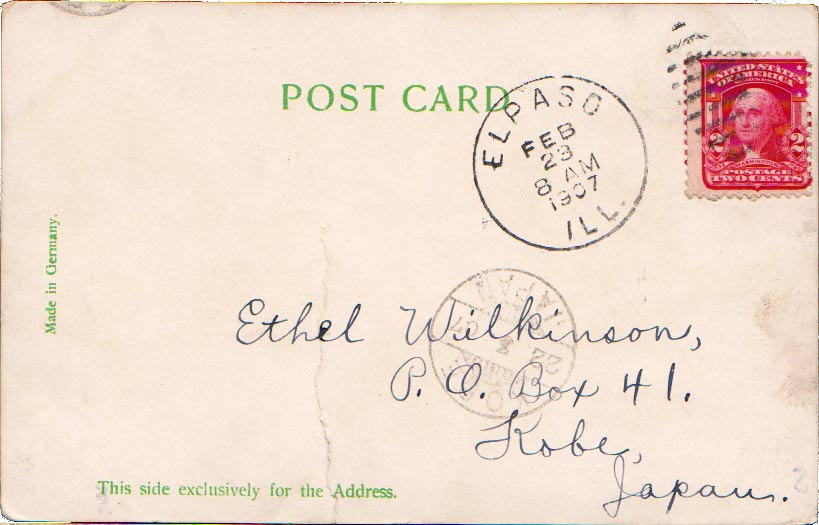 POST CARD
ELPASO
FEB
23
8 AM
1907
ILL.
UNITED STATES
OF AMERICA
2 2
WASHINGTON
POSTAGE
TWO CENTS
Made in Germany.
JAPAN
22
Ethel Wilkinson,
P. O. Box 41.
Kobe,
Japan.
This side exclusively for the Address.